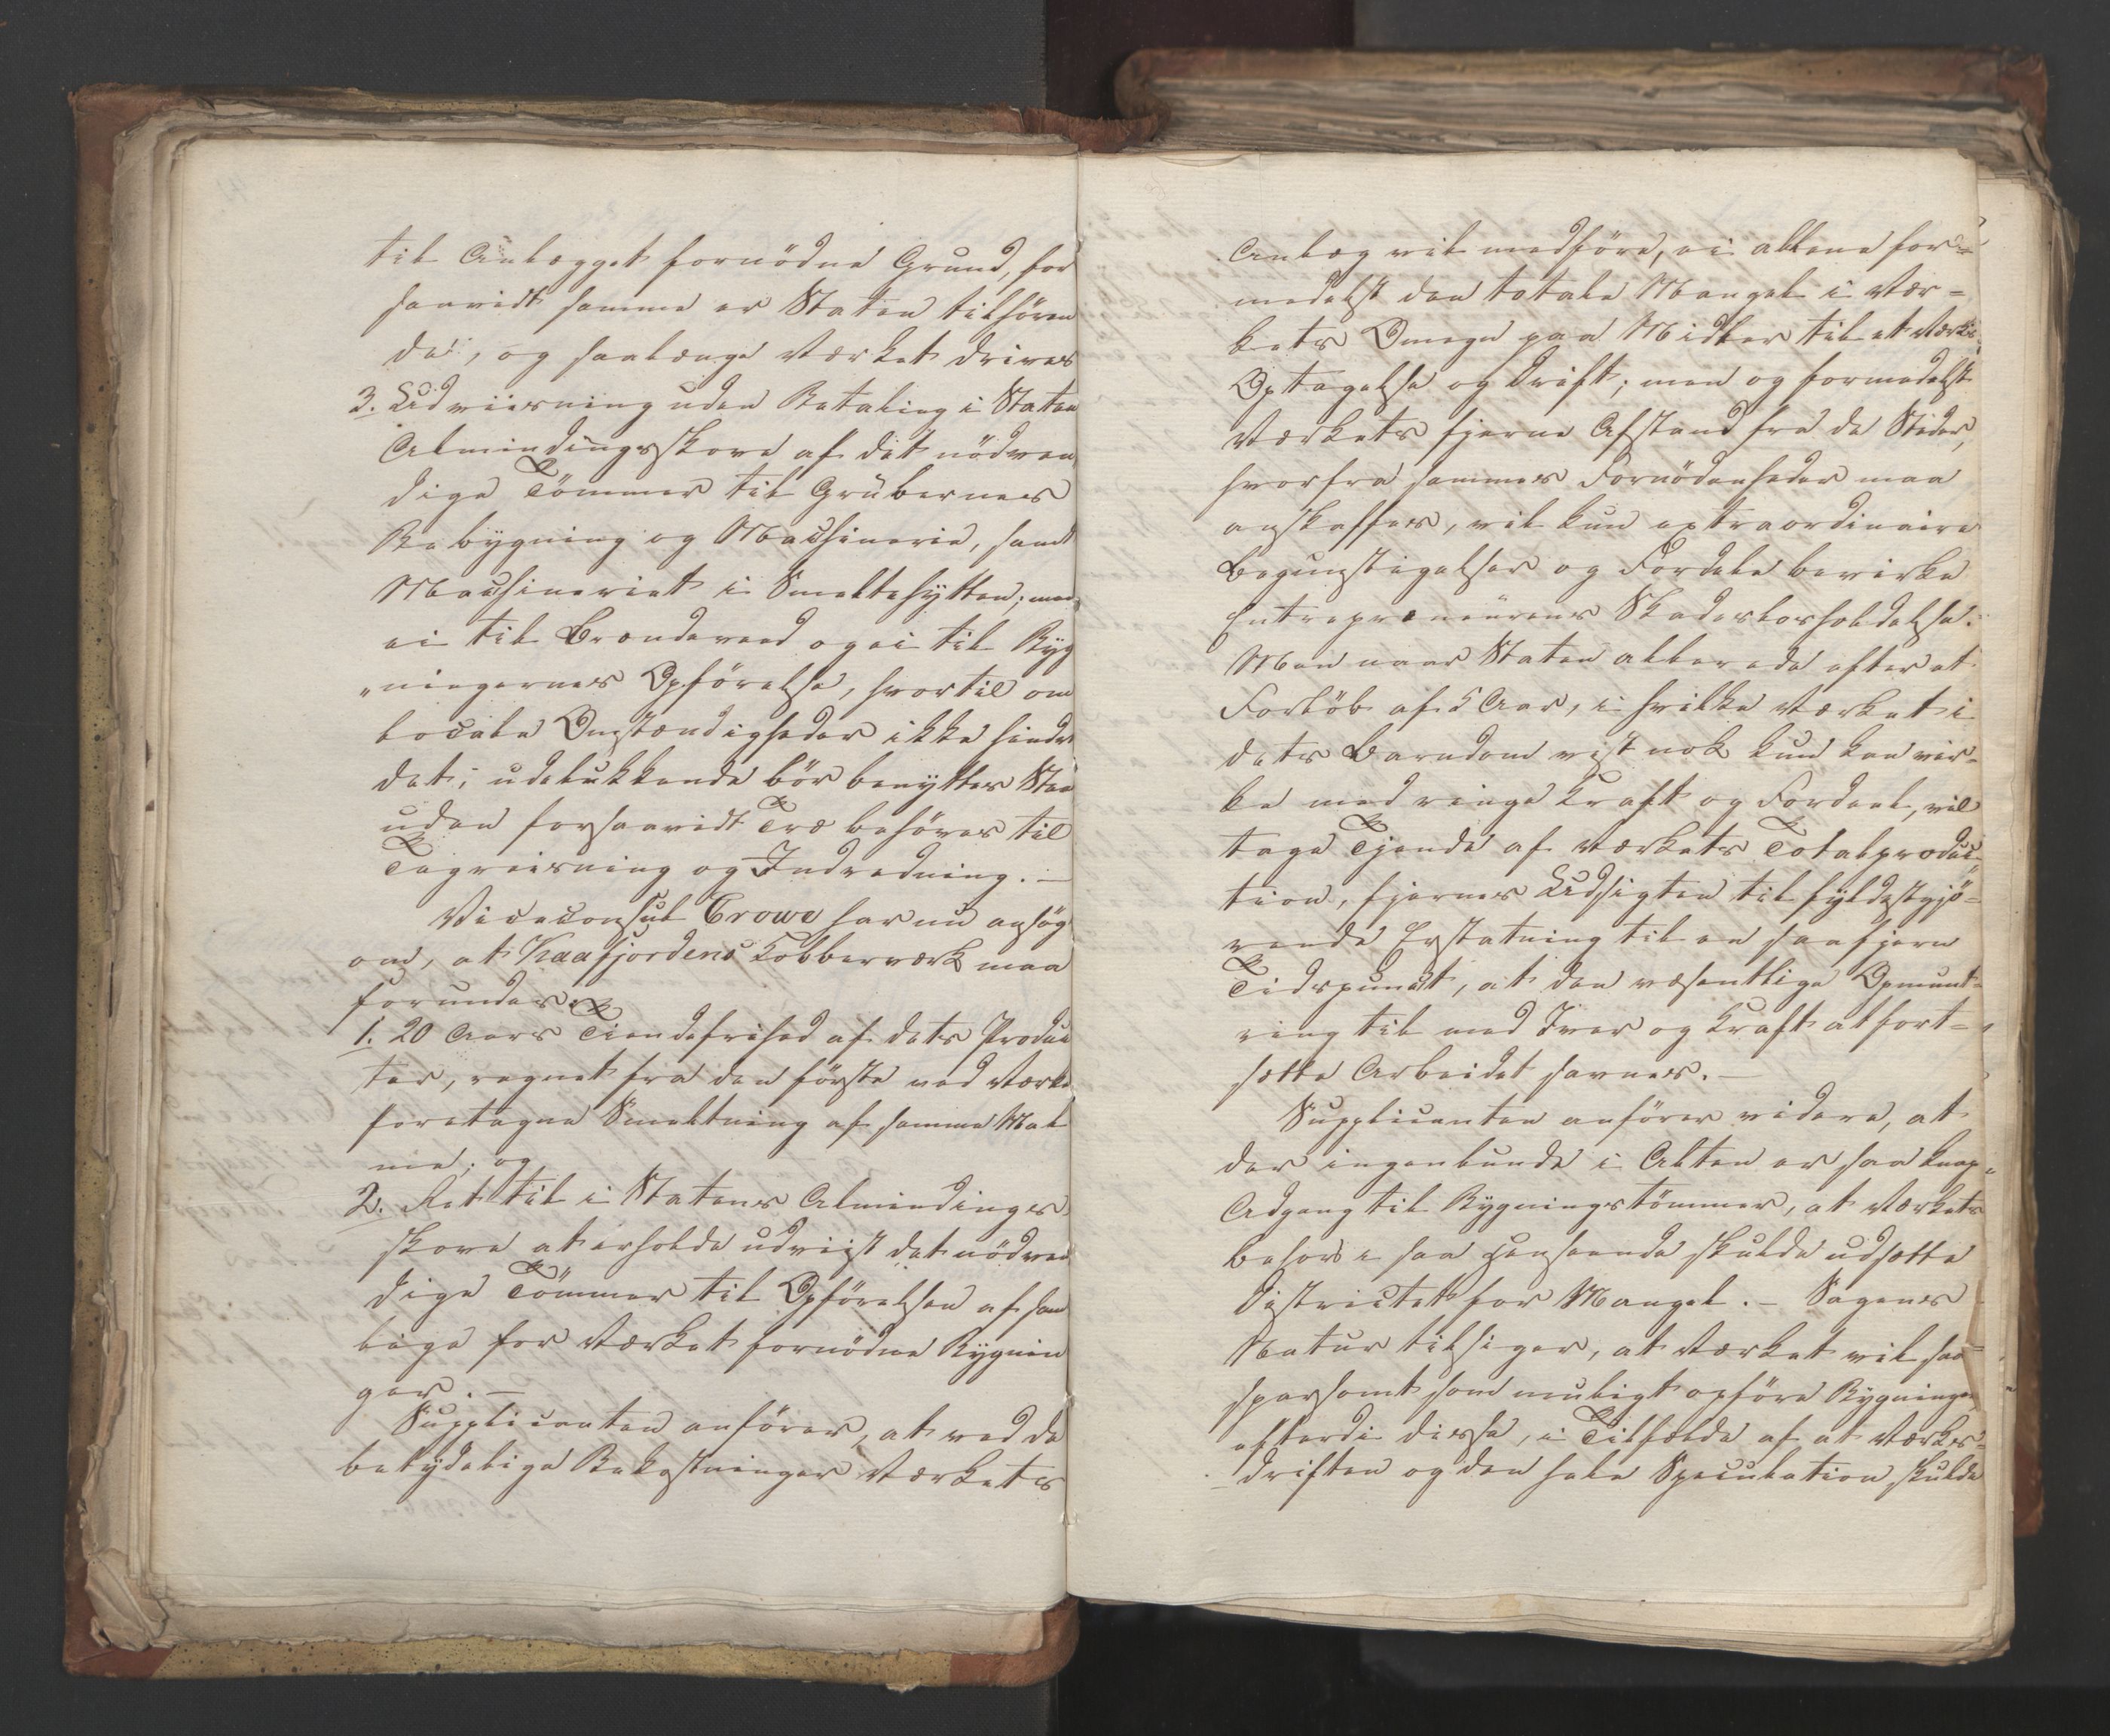 til Anlægget fornödne Grund, for
saavidt samme er Staten tilhören
de, og saalænge Værket drives
3. Udviisning uden Betaling i Staten
Almindingsskove af det nödven
dige Tömmer til Grubernes
Bebygning og Maschinerie, samt
Maschineriet i Smeltehytten; men
ei til Brændeveed og ei til Byg
"ningernes Opförelse, hvortil om
locale Omstændigheder ikke hindre
det, udelukkende bör benyttes Stee
uden forsaavidt Træ behöves til
Tagreisning og Indredning. –
Viceconsul Crowe har nu ansög
om, at Kaafjordens Kobberværk maa
forundes:
1. 20 Aars Tiendefrihed af dets Produc
ter, regnet fra den förste ved Værke
foretagne Smeltning af samme Mal
me; og
2. Ret til i Statens Almindinges
skove at erholde udviist det nödven
dige Tömmer til Opförelsen af sam
lige for Værket fornödne Bygnin
ger. –
Supplicanten anförer, at ved de
betydelige Bekostninger Værkets
Anlæg vil medföre, ei allene for=
medelst den totale Mangel i Vær=
kets Omegn paa Midler til et Værks
Optagelse og Drift; men og formedelst
Værkets fjerne Afstand fra de Steder,
hvorfra sammes Fornödenheder maa
anskaffes, vil kun extraordinaire
Begunstigelser og Fordele bevirke
Entrepreneurens Skadesløsholdelse.
Men naar Staten allerede efter et
Forlöb af 5 Aar, i hvilke Værket i
dets Barndom vist nok kun kan vir=
ke med ringe Kraft og Fordeel, vil
tage Tjende af Værkets Totalproduc=
tion, fjernes Udsigten til fyldestgjö=
rende Erstatning til en saa fjern
Tidspunct, at den væsentlige Opmunt=
ring til med Iver og Kraft at fort=
sætte Arbeidet savnes. –
Supplicanten anförer videre, at
der ingenlunde i Alten er saa knap
Adgang til Bygningstömmer, at Værkets
Behov i saa Henseende skulde udsætte
Districtet for Mangel. – Sagens
Natur tilsiger, at Værket vil saa
sparsomt som muligt opföre Bygninger
efterdi disse, i Tilfælde af at Værks=
driften og den hele Speculation skulde